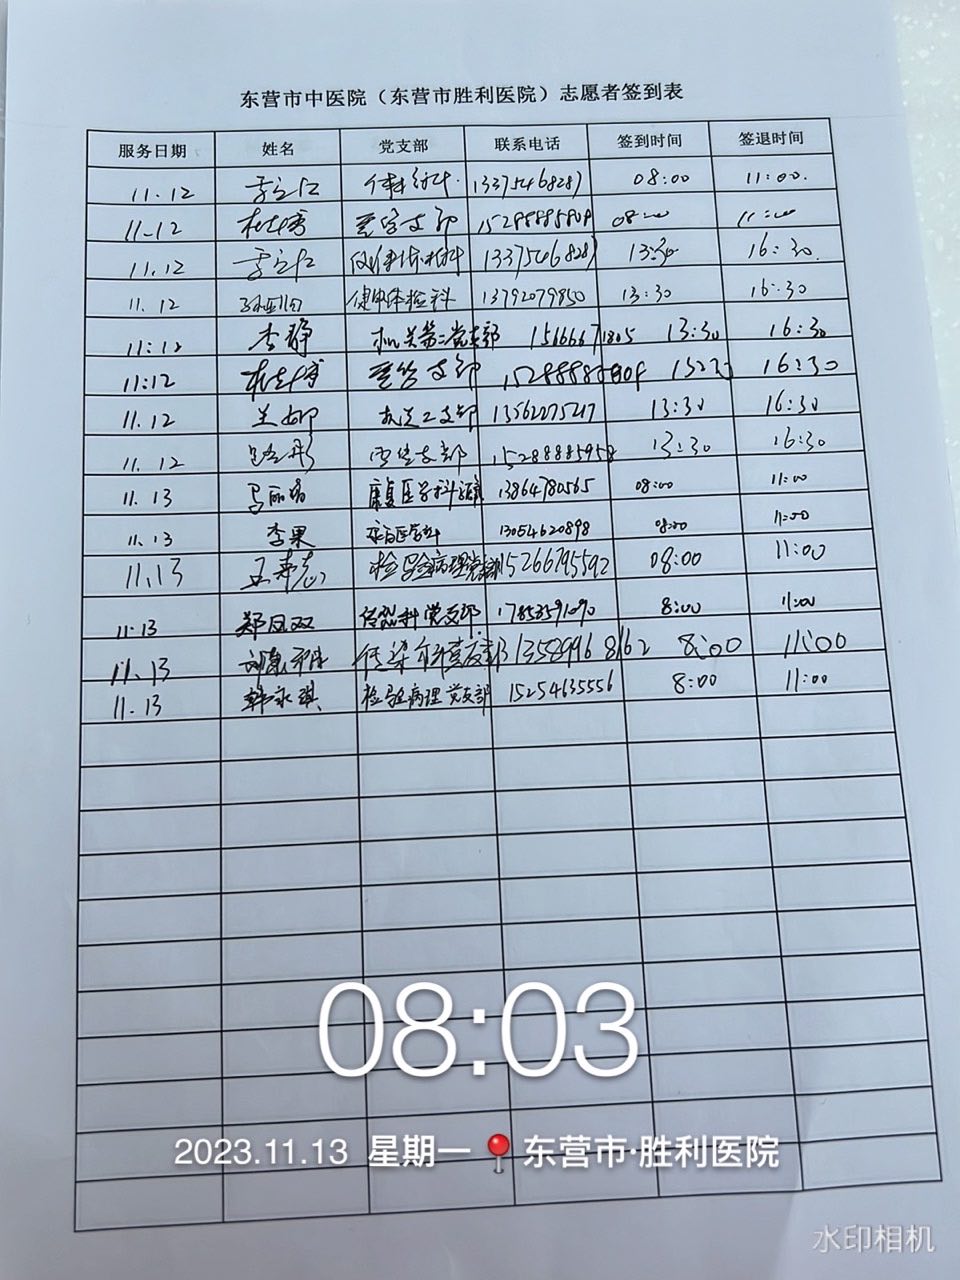 东营市中医院（东营市胜利医院）志愿者签到表
服务日期 姓名 党支部 联系电话 签到时间 签退时间
11.12 13375468287 08:00 11:00.
11-12 支部 08:00 11:00
11.12 13375468287 13:30 16:30.
11.12 健康体检科 13792079850 13:30 16:30
11:12 李静 机关第二党支部 15666671805 13:30 16:30
11:12 支部 16:30
11.12 支部 13562075217 13:30 16:30
11.12 支部 15288885958 13:30 16:30
11.13 马丽 康复医学科 13864780565 08:00 11:00
11.13 李果 13054620898 08:00 11:00
11.13 检验病理党支部 15266795592 08:00 11:00
11.13 郑凤双 党支部 17853591090 8:00 11:00
11.13 传染科党支部 13589968162 8:00 11:00
11.13 韩永琪 检验病理党支部 15254635556 8:00 11:00
08:03
2023.11.13 星期一 东营市·胜利医院
水印相机